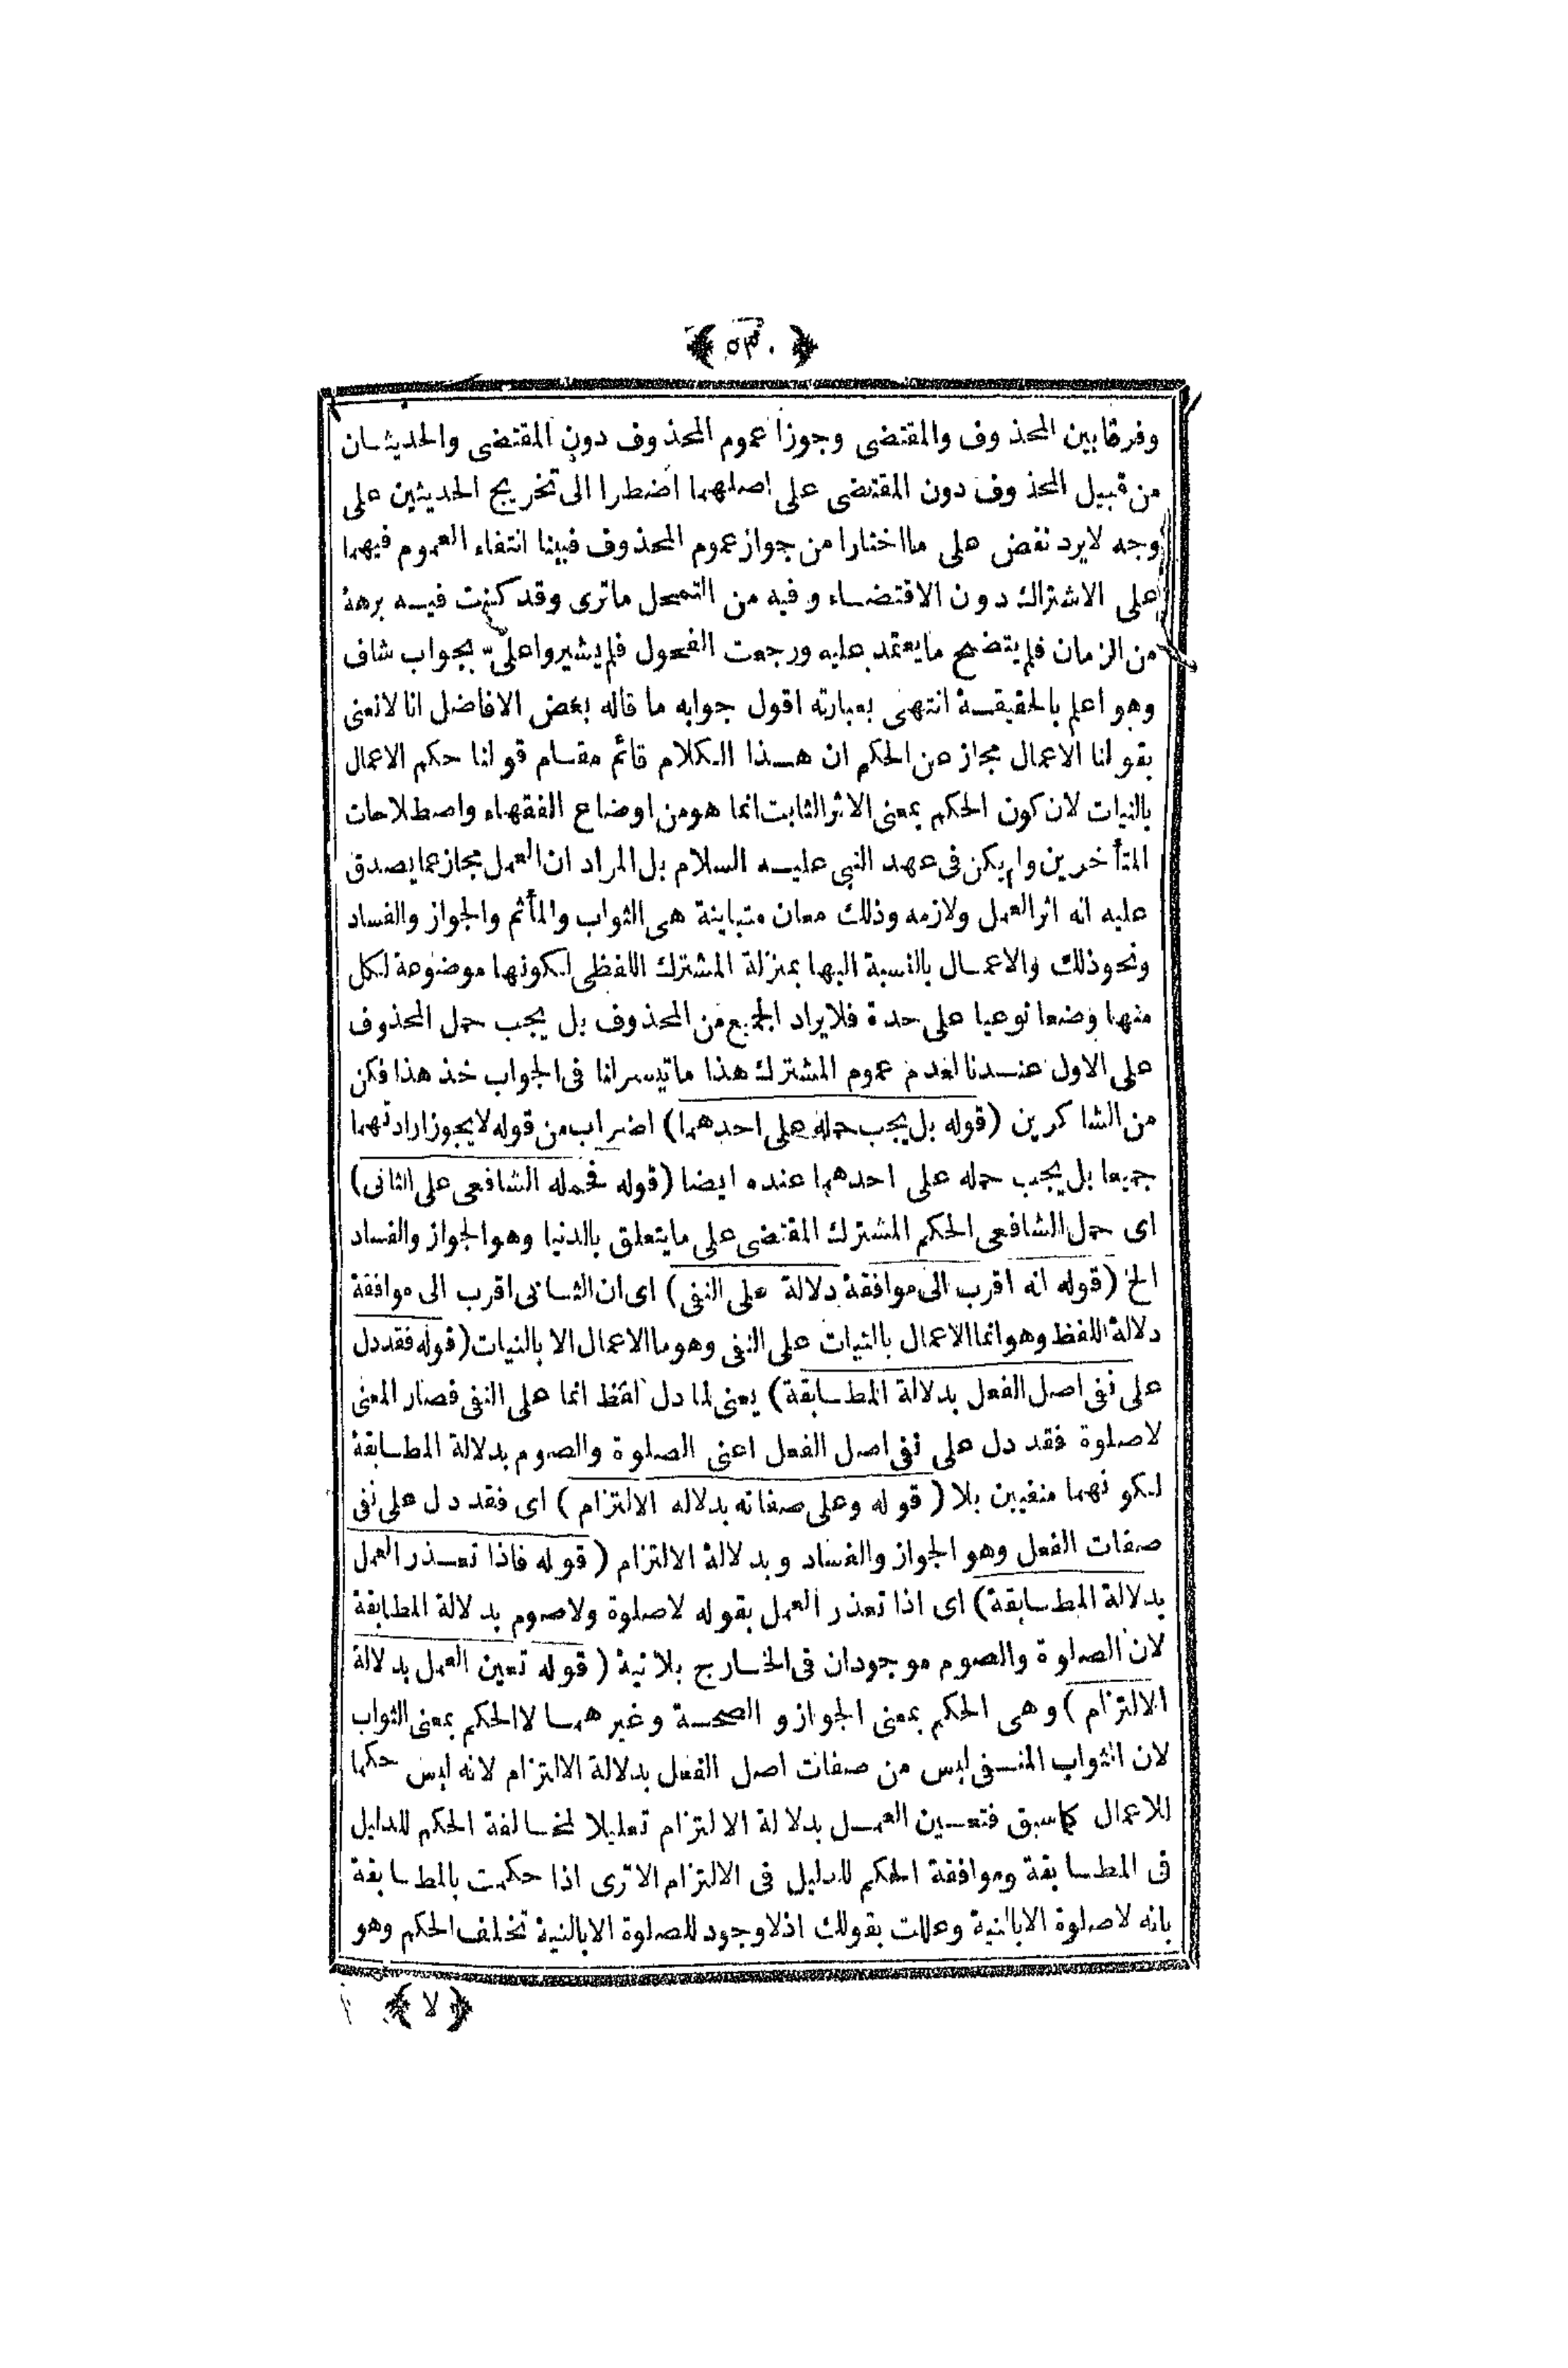 ﴿ ٥٣٠ ﴾
وفرقا بين المحذوف والمقتضى وجوزا عموم المحذوف دون المقتضى والحديثان
من قبيل المحذوف دون المقتضى على اصلهما اضطرا الى تخريج الحديثين على
وجه لايرد نقض على مااختارا من جواز عموم المحذوف فبينا انتفاء العموم فيهما
على الاشتراك دون الاقتضاء وفيه من التمحل ماترى وقد كنت فيه برهة
من الزمان فلم يتضح مايعتمد عليه ورجعت الفحول فلم يشيروا علىّ بجواب شاف
وهو اعلم بالحقيقة انتهى بعبارته اقول جوابه ما قاله بعض الافاضل انا لانعنى
بقولنا الاعمال مجاز عن الحكم ان هذا الكلام قائم مقام قولنا حكم الاعمال
بالنيات لان كون الحكم بمعنى الاثر الثابت انما هو من اوضاع الفقهاء واصطلاحات
المتأخرين ولم يكن فى عهد النبى عليه السلام بل المراد ان العمل مجاز عما يصدق
عليه انه اثر العمل ولازمه وذلك معان متباينة هى الثواب والمأثم والجواز والفساد
ونحو ذلك والاعمال بالنسبة اليها بمنزلة المشترك اللفظى لكونها موضوعة لكل
منها وضعا نوعيا على حدة فلايراد الجميع من المحذوف بل يجب حمل المحذوف
على الاول عندنا لعدم عموم المشترك هذا ماتيسر لنا فى الجواب خذ هذا فكن
من الشاكرين (قوله بل يجب حمله على احدهما) اضراب من قوله لايجوز ارادتهما
جميعا بل يجب حمله على احدهما عنده ايضا (قوله فحمله الشافعى على الثانى)
اى حمل الشافعى الحكم المشترك المقتضى على مايتعلق بالدنيا وهو الجواز والفساد
الخ (قوله انه اقرب الى موافقة دلالة على النفى) اى ان الثانى اقرب الى موافقة
دلالة اللفظ وهو انما الاعمال بالنيات على النفى وهو ما الاعمال الا بالنيات (قوله فقد دل
على نفى اصل الفعل بدلالة المطابقة) يعنى لما دل لفظ انما على النفى فصار المعنى
لاصلوة فقد دل على نفى اصل الفعل اعنى الصلوة والصوم بدلالة المطابقة
لكونهما منفيين بلا (قوله وعلى صفاته بدلاله الالتزام) اى فقد دل على نفى
صفات الفعل وهو الجواز والفساد وبدلالة الالتزام (قوله فاذا تعذر العمل
بدلالة المطابقة) اى اذا تعذر العمل بقوله لاصلوة ولاصوم بدلالة المطابقة
لان الصلوة والصوم موجودان فى الخارج بلانية (قوله تعين العمل بدلالة
الالتزام) وهى الحكم بمعنى الجواز و الصحة وغيرهما لاالحكم بمعنى الثواب
لان الثواب المنفى ليس من صفات اصل الفعل بدلالة الالتزام لانه ليس حكما
للاعمال كماسبق فتعين العمل بدلالة الالتزام تعليلا لمخالفة الحكم للدليل
فى المطابقة وموافقة الحكم للدليل فى الالتزام الاترى اذا حكمت بالمطابقة
بانه لاصلوة الابالنية وعللت بقولك اذلاوجود للصلوة الابالنية تخلف الحكم وهو
﴿ لا ﴾